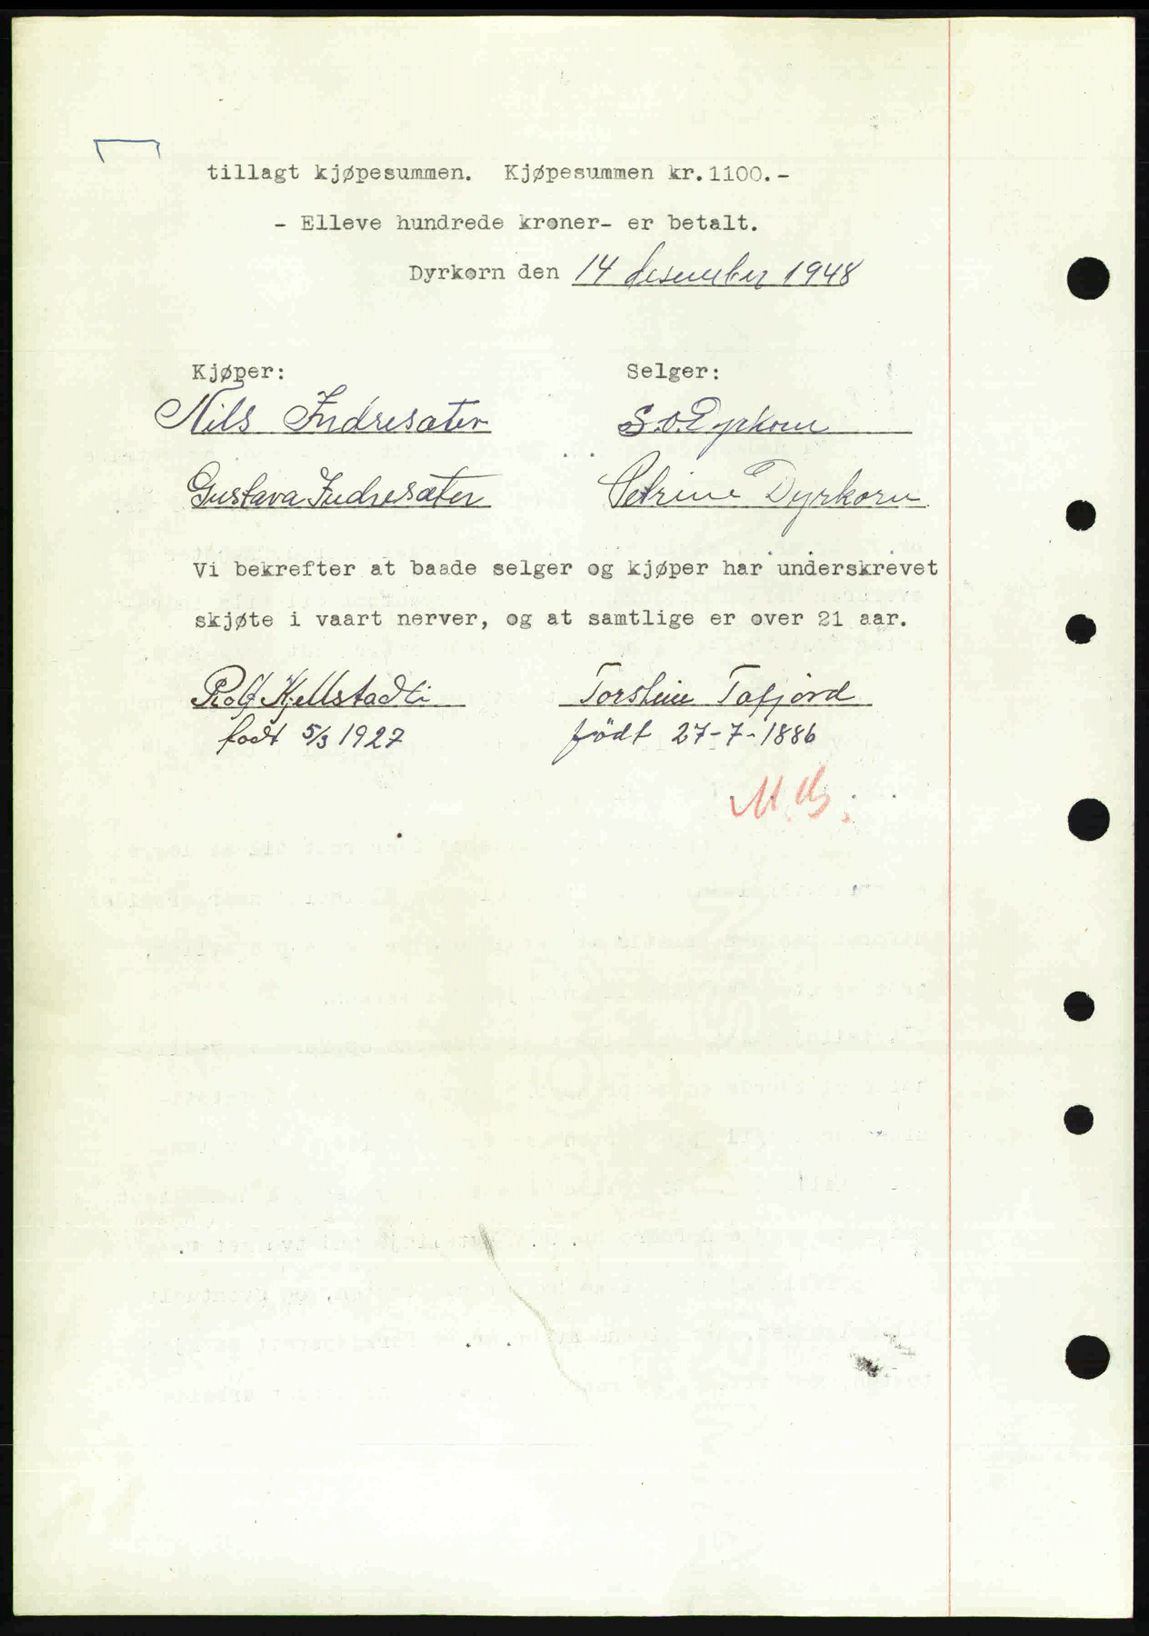 tillagt kjøpesummen. Kjøpesummen kr.1100.-
- Elleve hundrede kroner- er betalt.
Dyrkorn den 14 desember 1948
Kjøper: Selger:
Nils Indresæter S.O.Dyrkorn
Gustava Indresæter Petrine Dyrkorn
Vi bekrefter at baade selger og kjøper har underskrevet
skjøte i vaart nerver, og at samtlige er over 21 aar.
Rolf Kjellstadli Torstein Tafjord
født 5/3 1927 födt 27-7-1886